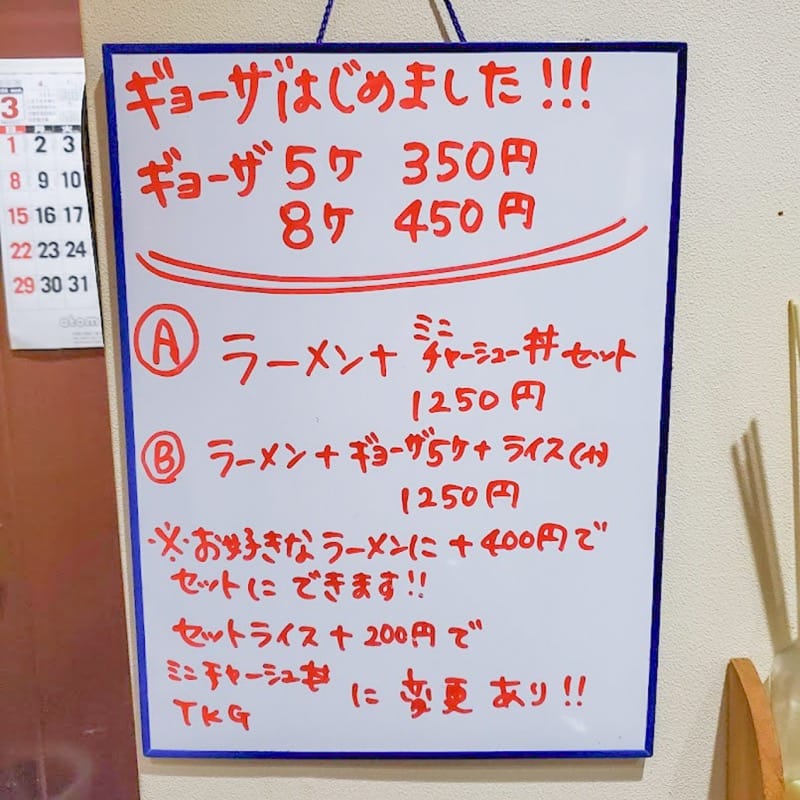 ギョーザはじめました!!!
ギョーザ 5ケ 350円
8ケ 450円
Ⓐ ラーメン+ ミニチャーシュー丼 セット
1250円
Ⓑ ラーメン+ギョーザ5ケ+ライス(小)
1250円
※お好きなラーメンに+400円で
セットにできます!!
セットライス+200円で
ミニチャーシュー丼
TKG に変更あり!!
3
日 月 火
1 2 3
8 9 10
15 16 17
22 23 24
29 30 31